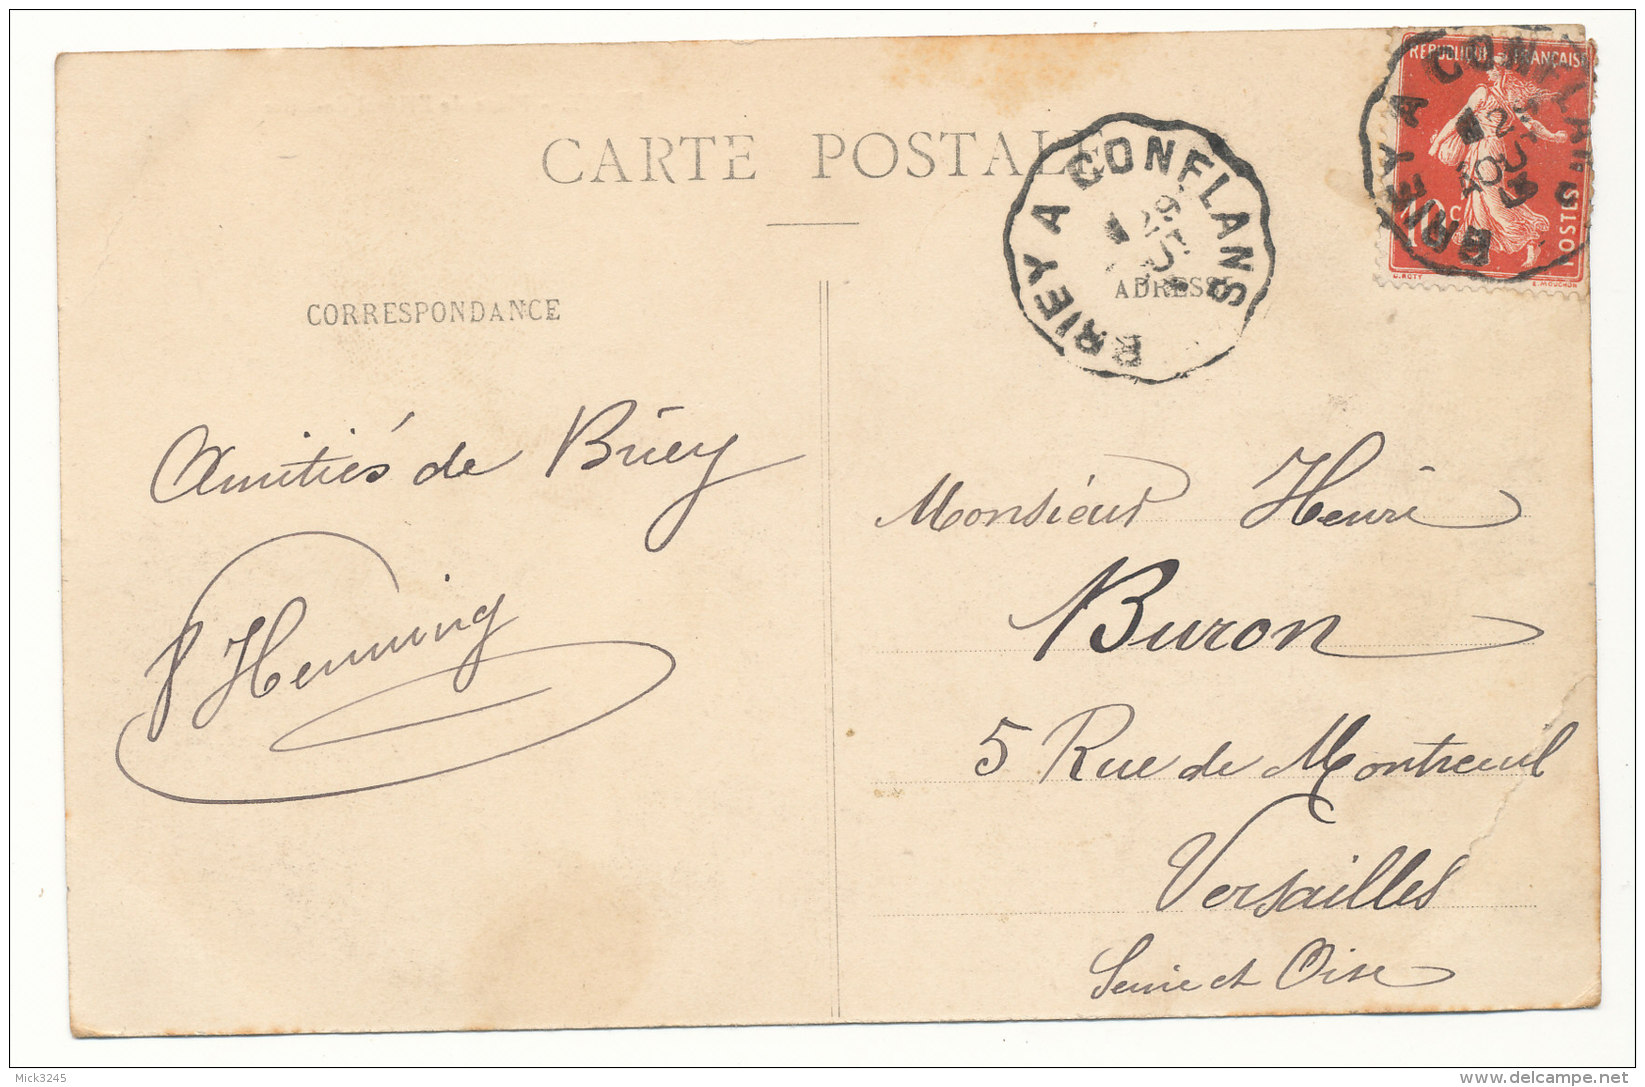 CARTE POSTALE
CORRESPONDANCE
ADRESSE
BRIEY A CONFLANS
REPUBLIQUE FRANÇAISE
BRIEY A CONFLANS
10c
POSTES
O. ROTY
E. MOUCHON
Amitiés de Briey
Henning
Monsieur Henri
Buron
5 Rue de Montreuil
Versailles
Seine et Oise
Mick3245
delcampe.net